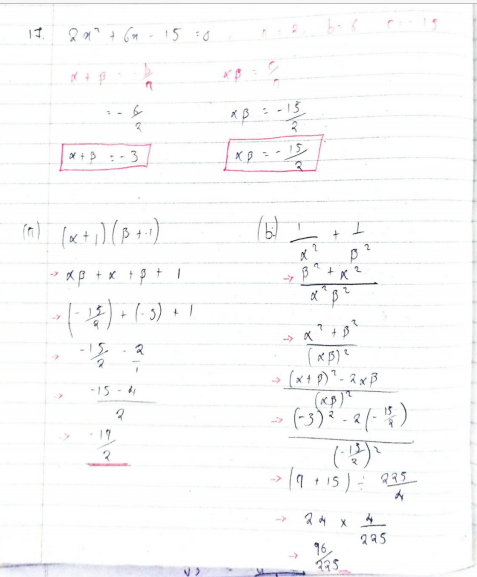 17. 2x² + 6x - 15 = 0 a = 2, b = 6 c = -15
α + β = -b/a αβ = c/a
= -6/2 αβ = -15/2
α + β = -3 αβ = -15/2
(a) (α+1)(β+1)
→ αβ + α + β + 1
→ (-15/2) + (-3) + 1
→ -15/2 - 2/1
→ (-15 - 4)/2
→ -19/2
(b) 1/α² + 1/β²
→ (β² + α²)/(α²β²)
→ (α² + β²)/(αβ)²
→ ((α+β)² - 2αβ)/(αβ)²
→ ((-3)² - 2(-15/2))/(-15/2)²
→ (9 + 15) ÷ 225/4
→ 24 × 4/225
→ 96/225